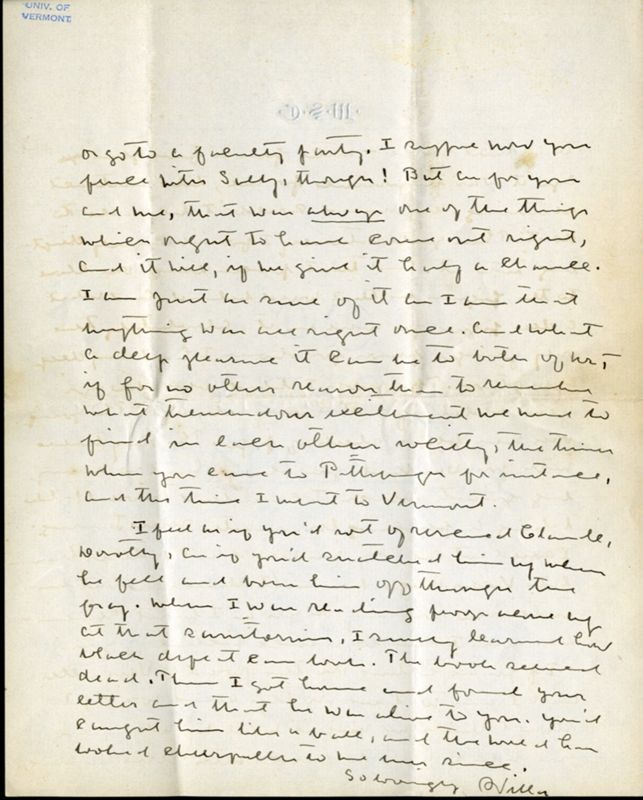 UNIV. OF
VERMONT
·W·S·C·
or go to a faculty party. I suppose now you
feel with Sally, though! But as for you
and me, that was always one of the things
which ought to have come out right,
and it will, if we give it half a chance.
I am just as sure of it as I am that
anything was all right once. And what
a deep pleasure it can be to both of us,
if for no other reason than to remember
what tremendous excitement we used to
find in each others society, the times
when you came to Pittsburgh for instance,
and the time I went to Vermont.
I feel as if you'd sort of rescued Claude,
Dorothy, as if you'd snatched him up when
he fell and born him off through the
fray. When I was reading proof alone up
at that sanitorium, I surely learned how
black defeat can look. The book seemed
dead. Then I got home and found your
letter and that he was alive to you. You'd
caught him like a ball, and the world has
looked cheerfuller to me ever since.
So lovingly Willa